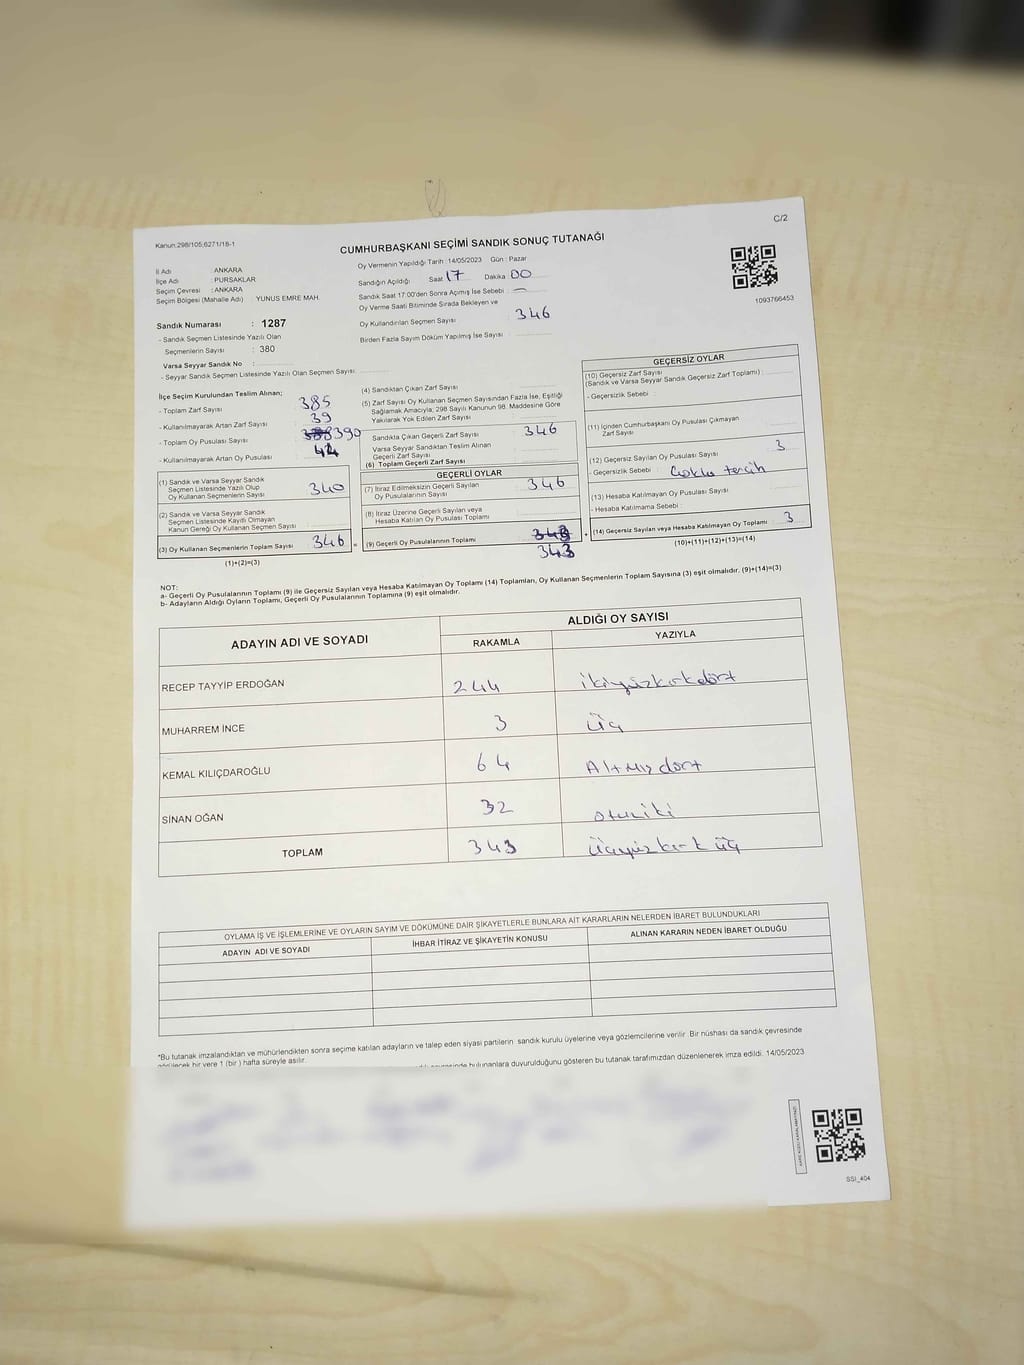 C/2
Kanun:298/105;6271/18-1
CUMHURBAŞKANI SEÇİMİ SANDIK SONUÇ TUTANAĞI
İl Adı : ANKARA
İlçe Adı : PURSAKLAR
Seçim Çevresi : ANKARA
Seçim Bölgesi (Mahalle Adı) YUNUS EMRE MAH.
Sandık Numarası : 1287
- Sandık Seçmen Listesinde Yazılı Olan
Seçmenlerin Sayısı : 380
Varsa Seyyar Sandık No :
- Seyyar Sandık Seçmen Listesinde Yazılı Olan Seçmen Sayısı:
Oy Vermenin Yapıldığı Tarih : 14/05/2023 Gün : Pazar
Sandığın Açıldığı Saat 17 Dakika 00
Sandık Saat 17:00'den Sonra Açımış İse Sebebi : —
Oy Verme Saati Bitiminde Sırada Bekleyen ve
Oy Kullandırılan Seçmen Sayısı : 346
Birden Fazla Sayım Döküm Yapılmış İse Sayısı :
1093766453
İlçe Seçim Kurulundan Teslim Alınan;
- Toplam Zarf Sayısı 385
- Kullanılmayarak Artan Zarf Sayısı : 39
- Toplam Oy Pusulası Sayısı 390
- Kullanılmayarak Artan Oy Pusulası : 44
(1) Sandık ve Varsa Seyyar Sandık
Seçmen Listesinde Yazılı Olup
Oy Kullanan Seçmenlerin Sayısı 340
(2) Sandık ve Varsa Seyyar Sandık
Seçmen Listesinde Kaydı Olmayan
Kanun Gereği Oy Kullanan Seçmen Sayısı :
(3) Oy Kullanan Seçmenlerin Toplam Sayısı 346
(1)+(2)=(3)
(4) Sandıktan Çıkan Zarf Sayısı
(5) Zarf Sayısı Oy Kullanan Seçmen Sayısından Fazla İse, Eşitliği
Sağlamak Amacıyla, 298 Sayılı Kanunun 98. Maddesine Göre
Yakılarak Yok Edilen Zarf Sayısı :
Sandıkta Çıkan Geçerli Zarf Sayısı : 346
Varsa Seyyar Sandıktan Teslim Alınan
Geçerli Zarf Sayısı
(6) Toplam Geçerli Zarf Sayısı
GEÇERLİ OYLAR
(7) İtiraz Edilmeksizin Geçerli Sayılan
Oy Pusulalarının Sayısı : 346
(8) İtiraz Üzerine Geçerli Sayılan veya
Hesaba Katılan Oy Pusulası Toplamı
= (9) Geçerli Oy Pusulalarının Toplamı
343
GEÇERSİZ OYLAR
(10) Geçersiz Zarf Sayısı
(Sandık ve Varsa Seyyar Sandık Geçersiz Zarf Toplamı) :
- Geçersizlik Sebebi :
(11) İçinden Cumhurbaşkanı Oy Pusulası Çıkmayan
Zarf Sayısı
(12) Geçersiz Sayılan Oy Pusulası Sayısı 3
- Geçersizlik Sebebi : Çoklu tercih
(13) Hesaba Katılmayan Oy Pusulası Sayısı
- Hesaba Katılmama Sebebi :
+ (14) Geçersiz Sayılan veya Hesaba Katılmayan Oy Toplamı : 3
(10)+(11)+(12)+(13)=(14)
NOT:
a- Geçerli Oy Pusulalarının Toplamı (9) ile Geçersiz Sayılan veya Hesaba Katılmayan Oy Toplamı (14) Toplamları, Oy Kullanan Seçmenlerin Toplam Sayısına (3) eşit olmalıdır. (9)+(14)=(3)
b- Adayların Aldığı Oyların Toplamı, Geçerli Oy Pusulalarının Toplamına (9) eşit olmalıdır.
ADAYIN ADI VE SOYADI ALDIĞI OY SAYISI
RAKAMLA YAZIYLA
RECEP TAYYİP ERDOĞAN 244 ikiyüzkırkdört
MUHARREM İNCE 3 üç
KEMAL KILIÇDAROĞLU 64 Altmışdört
SİNAN OĞAN 32 otuziki
TOPLAM 343 üçyüzkırk üç
OYLAMA İŞ VE İŞLEMLERİNE VE OYLARIN SAYIM VE DÖKÜMÜNE DAİR ŞİKAYETLERLE BUNLARA AİT KARARLARIN NELERDEN İBARET BULUNDUKLARI
ADAYIN ADI VE SOYADI İHBAR İTİRAZ VE ŞİKAYETİN KONUSU ALINAN KARARIN NEDEN İBARET OLDUĞU
*Bu tutanak imzalandıktan ve mühürlendikten sonra seçime katılan adayların ve talep eden siyasi partilerin sandık kurulu üyelerine veya gözlemcilerine verilir. Bir nüshası da sandık çevresinde
görülecek bir yere 1 (bir) hafta süreyle asılır.
bulunanlara duyurulduğunu gösteren bu tutanak tarafımızdan düzenlenerek imza edildi. 14/05/2023
SSI_404